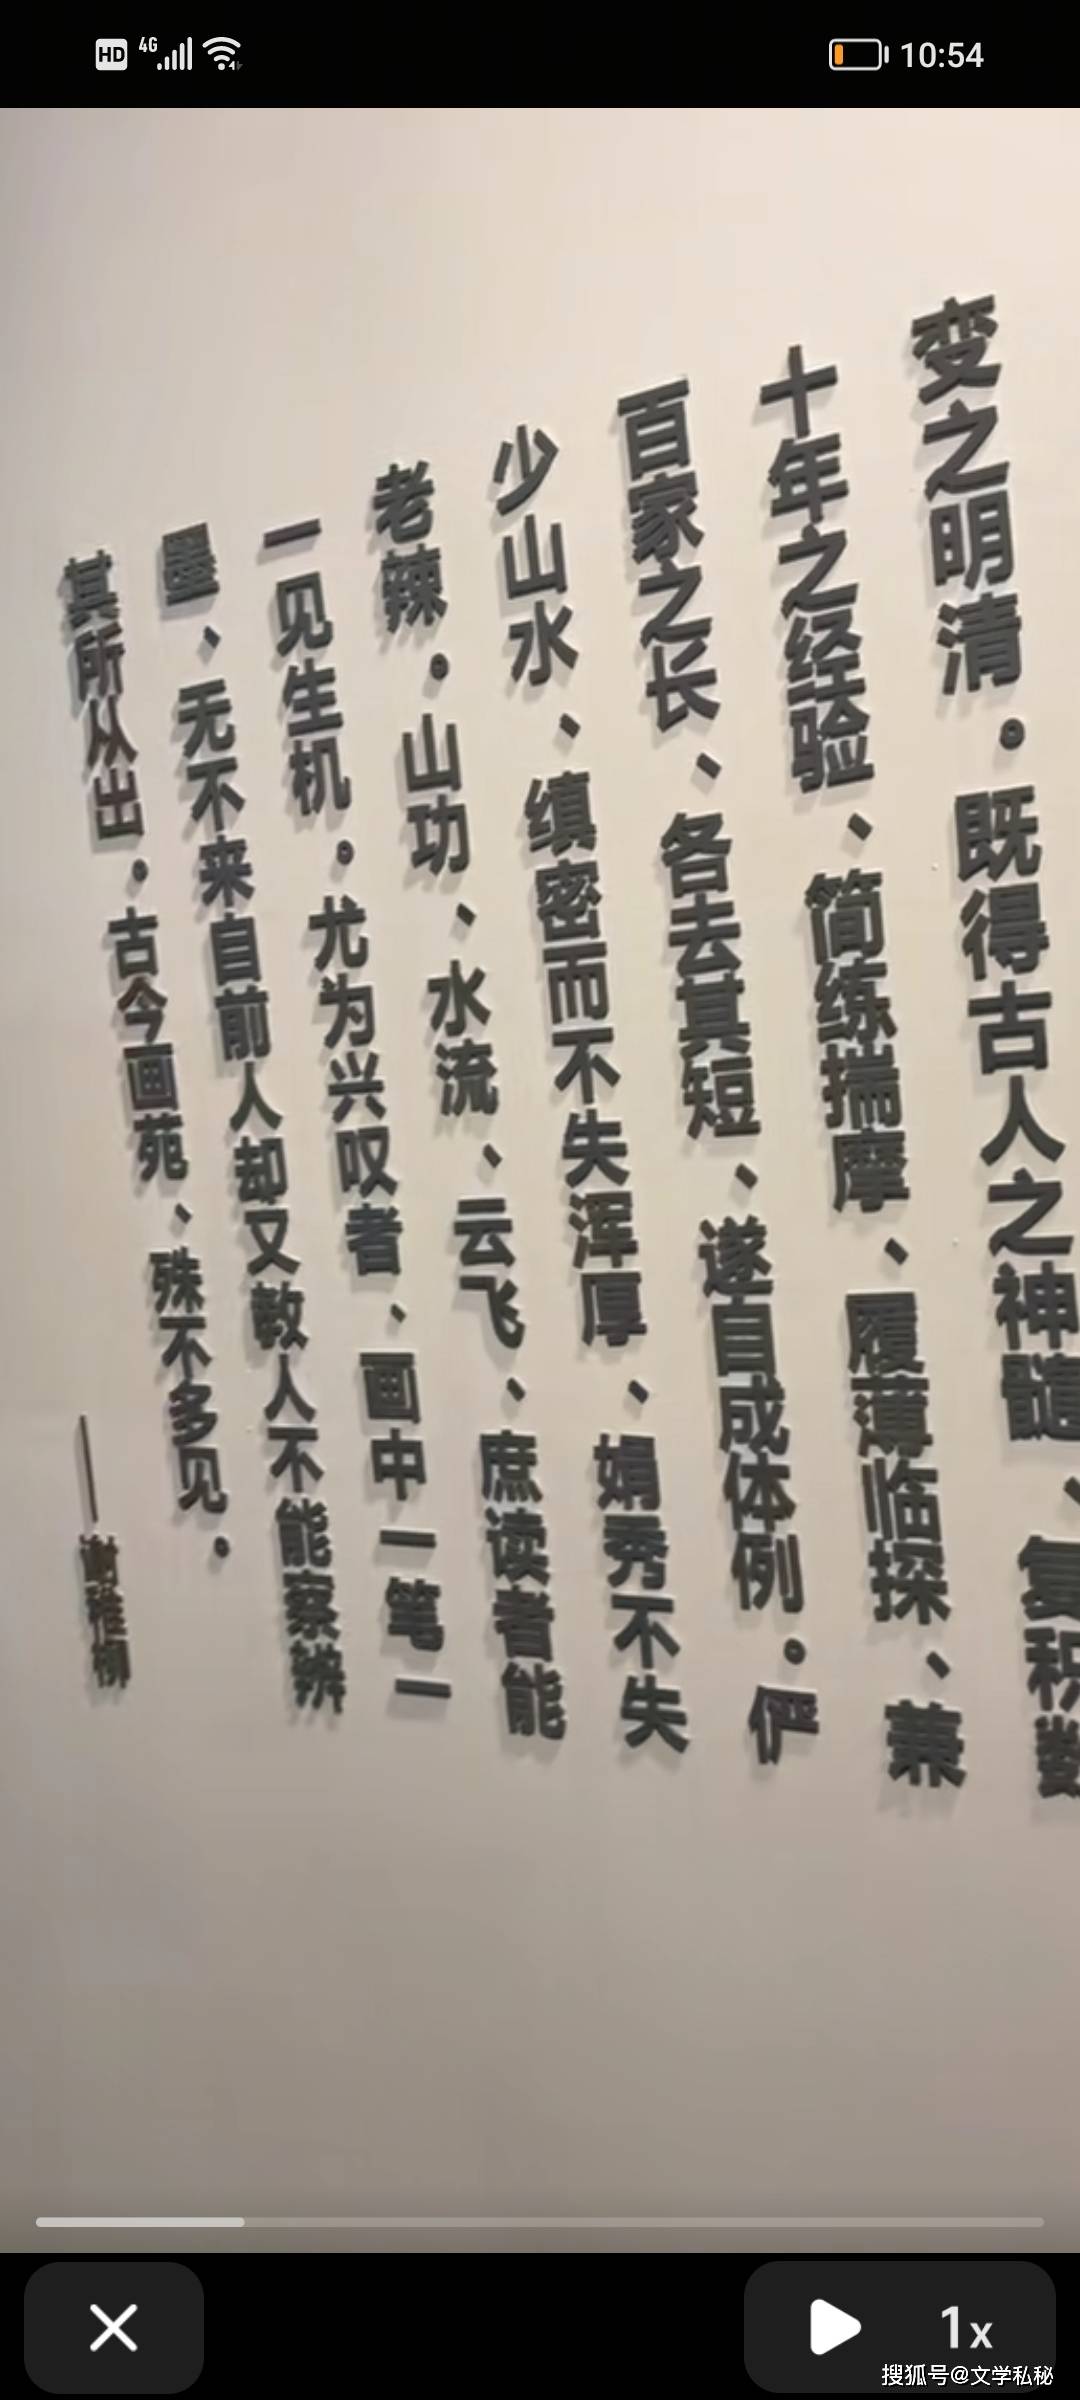 HD 4G 10:54
变之明清。既得古人之神髓、复积数
十年之经验、简练揣摩、履薄临探、兼
百家之长、各去其短、遂自成体例。俨
少山水、缜密而不失浑厚、娟秀不失
老辣。山功、水流、云飞、庶读者能
一见生机。尤为兴叹者、画中一笔一
墨、无不来自前人却又教人不能察辨
其所从出。古今画苑、殊不多见。
——谢稚柳
1x
搜狐号@文学私秘